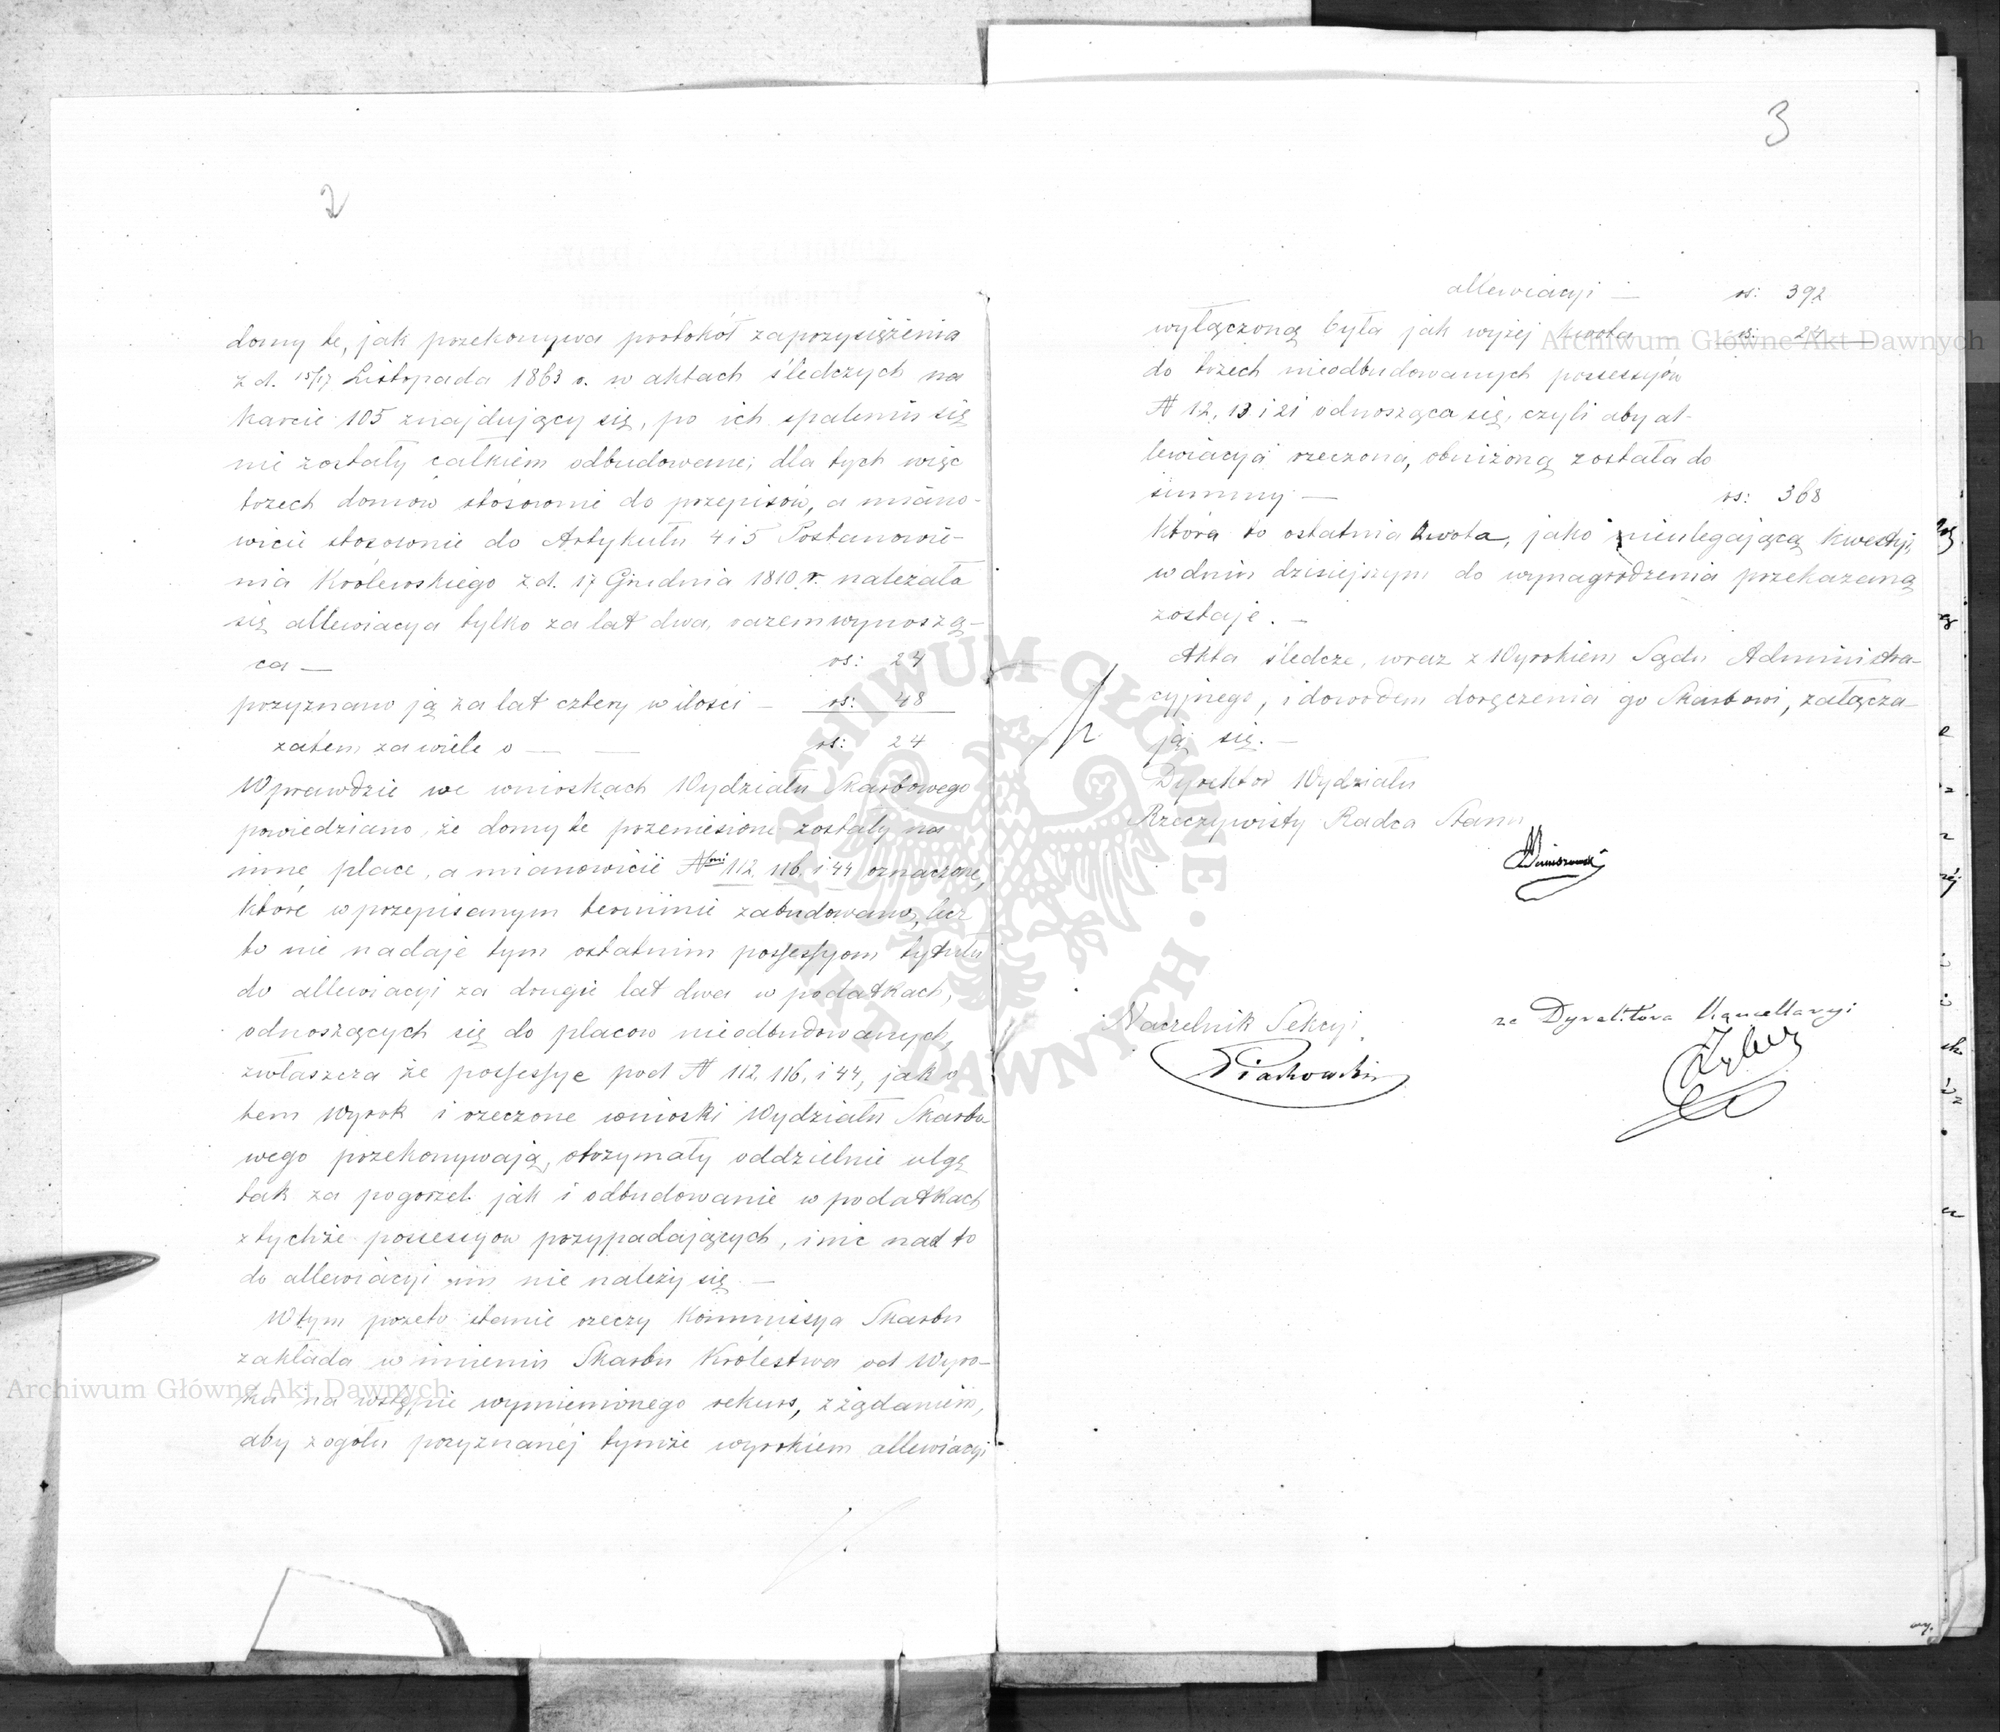 2
domy te, jak przekonywa protokół zaprzysiężenia
z d. 15/17 Listopada 1863 r. w aktach śledczych na
karcie 105 znajdujący się, po ich spaleniu się
nie zostały całkiem odbudowane; dla tych więc
trzech domów stósownie do przepisów, a miano-
wicie stosownie do Artykułu 4 i 5 Postanowie-
nia Królewskiego z d. 17 Grudnia 1810 r. należała
się allewiacya tylko za lat dwa, razem wynoszą-
ca — rs: 24
przyznano ją za lat cztery w ilości — rs: 48
zatem za wiele o — — rs: 24
Wprawdzie we wnioskach Wydziału Skarbowego
powiedziano, że domy te przeniesione zostały na
inne place, a mianowicie Nmi 112, 116, i 44 oznaczone,
które w przepisanym terminie zabudowano, lecz
to nie nadaje tym ostatnim possessyom tytułu
do allewiacyi za drugie lat dwa w podatkach,
odnoszących się do placow nieodbudowanych,
zwłaszcza że possessye pod N 112, 116, i 44, jak o
tem Wyrok i rzeczone wnioski Wydziału Skarbo-
wego przekonywają, otrzymały oddzielnie ulgę
tak za pogorzel jak i odbudowanie w podatkach
z tychże possessyow przypadających, i nic nad to
do allewiacyi im nie należy się —
W tym przeto stanie rzeczy Kommissya Skarbu
zakłada w imieniu Skarbu Królestwa od Wyro-
ku na wstępie wymienionego rekurs, z żądaniem,
aby z ogółu przyznanéj tymże wyrokiem allewiacyi
3
allewiacyi — rs: 392
wyłączoną była jak wyżej kwota rs: 24
do trzech nieodbudowanych possessyów
N 12, 13 i 21 odnosząca się, czyli aby al-
lewiacya rzeczona, obniżoną została do
summy — rs: 368
która to ostatnia kwota, jako nieulegająca kwestyi,
w dniu dzisiejszym do wynagrodzenia przekazaną
zostaje. —
Akta śledcze, wraz z Wyrokiem Sądu Administra-
cyjnego, i dowodem doręczenia go Skarbowi, załącza-
ją się. —
Dyrektor Wydziału
Rzeczywisty Radca Stanu
Naczelnik Sekcyi
za Dyrektora Kancellaryi
Piaskowski
Archiwum Główne Akt Dawnych
Archiwum Główne Akt Dawnych
ARCHIWUM GŁÓWNE AKT DAWNYCH